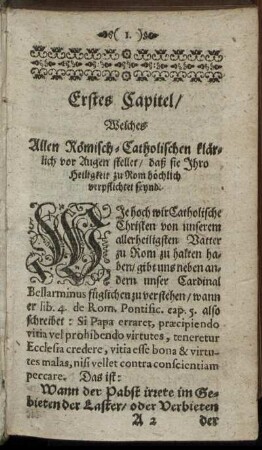 ( 1. )
Erstes Capitel/
Welches
Allen Römisch-Catholischen klär-
lich vor Augen stellet/ daß sie Ihro
Heiligkeit zu Rom höchlich
verpflichtet seynd.
WJe hoch wir Catholische
Christen von unserem
allerheiligsten Vatter
zu Rom zu halten ha-
ben/ gibt uns neben an-
dern unser Cardinal
Bellarminus füglichen zu verstehen/ wann
er lib. 4. de Rom. Pontific. cap. 5. also
schreibet: Si Papa erraret, præcipiendo
vitia vel prohibendo virtutes, teneretur
Ecclesia credere, vitia esse bona & virtu-
tes malas, nisi vellet contra conscientiam
peccare. Das ist:
Wann der Pabst irrete im Ge-
bieten der Laster/ oder Verbieten
A 2 der